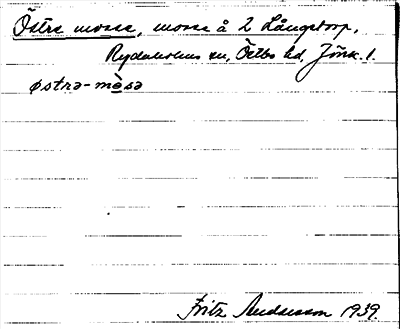 Östra mosse, mosse å 2 Långstorp,
Rydaholms sn, Östbo hd, Jönk. l.
østra-mòsə
Fritz Andersson 1939.